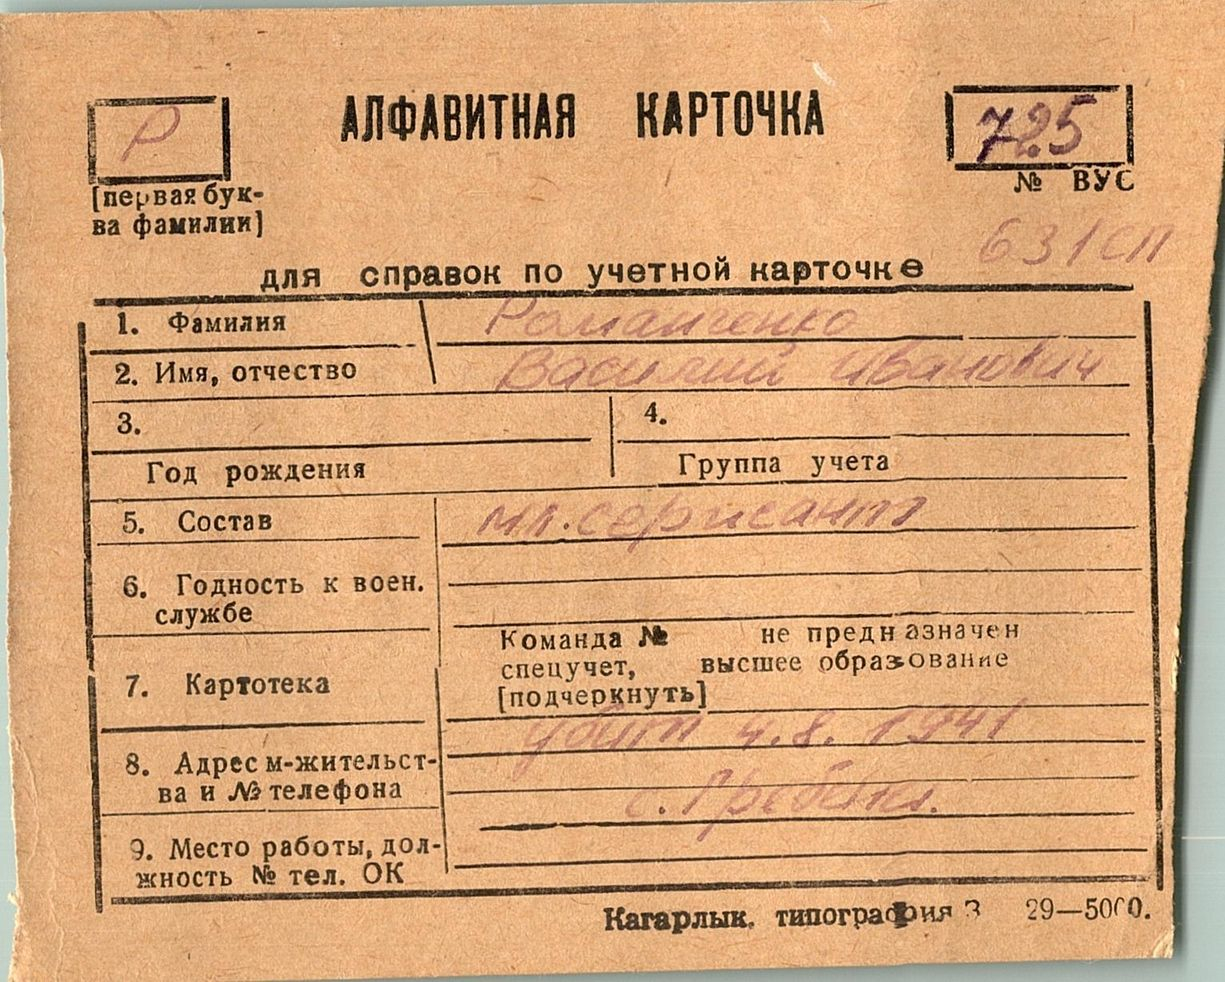 Р
АЛФАВИТНАЯ КАРТОЧКА
725
[первая бук-
ва фамилии]
№ ВУС
631 СП
для справок по учетной карточке
1. Фамилия Романченко
2. Имя, отчество Василий Иванович
3.
4.
Год рождения
Группа учета
5. Состав мл. сержант
6. Годность к воен.
службе
7. Картотека
Команда № не предназначен
спецучет, высшее образование
[подчеркнуть]
убит 4.8.1941
8. Адрес м-жительст-
ва и № телефона
с. Гребени.
9. Место работы, дол-
жность № тел. ОК
Кагарлык. типография З 29—5000.